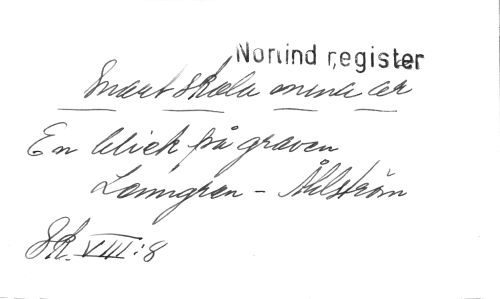 Norlind register
Snart skola mina ar
En blick på graven
Lenngren - Åhlström
Sk. VIII:8